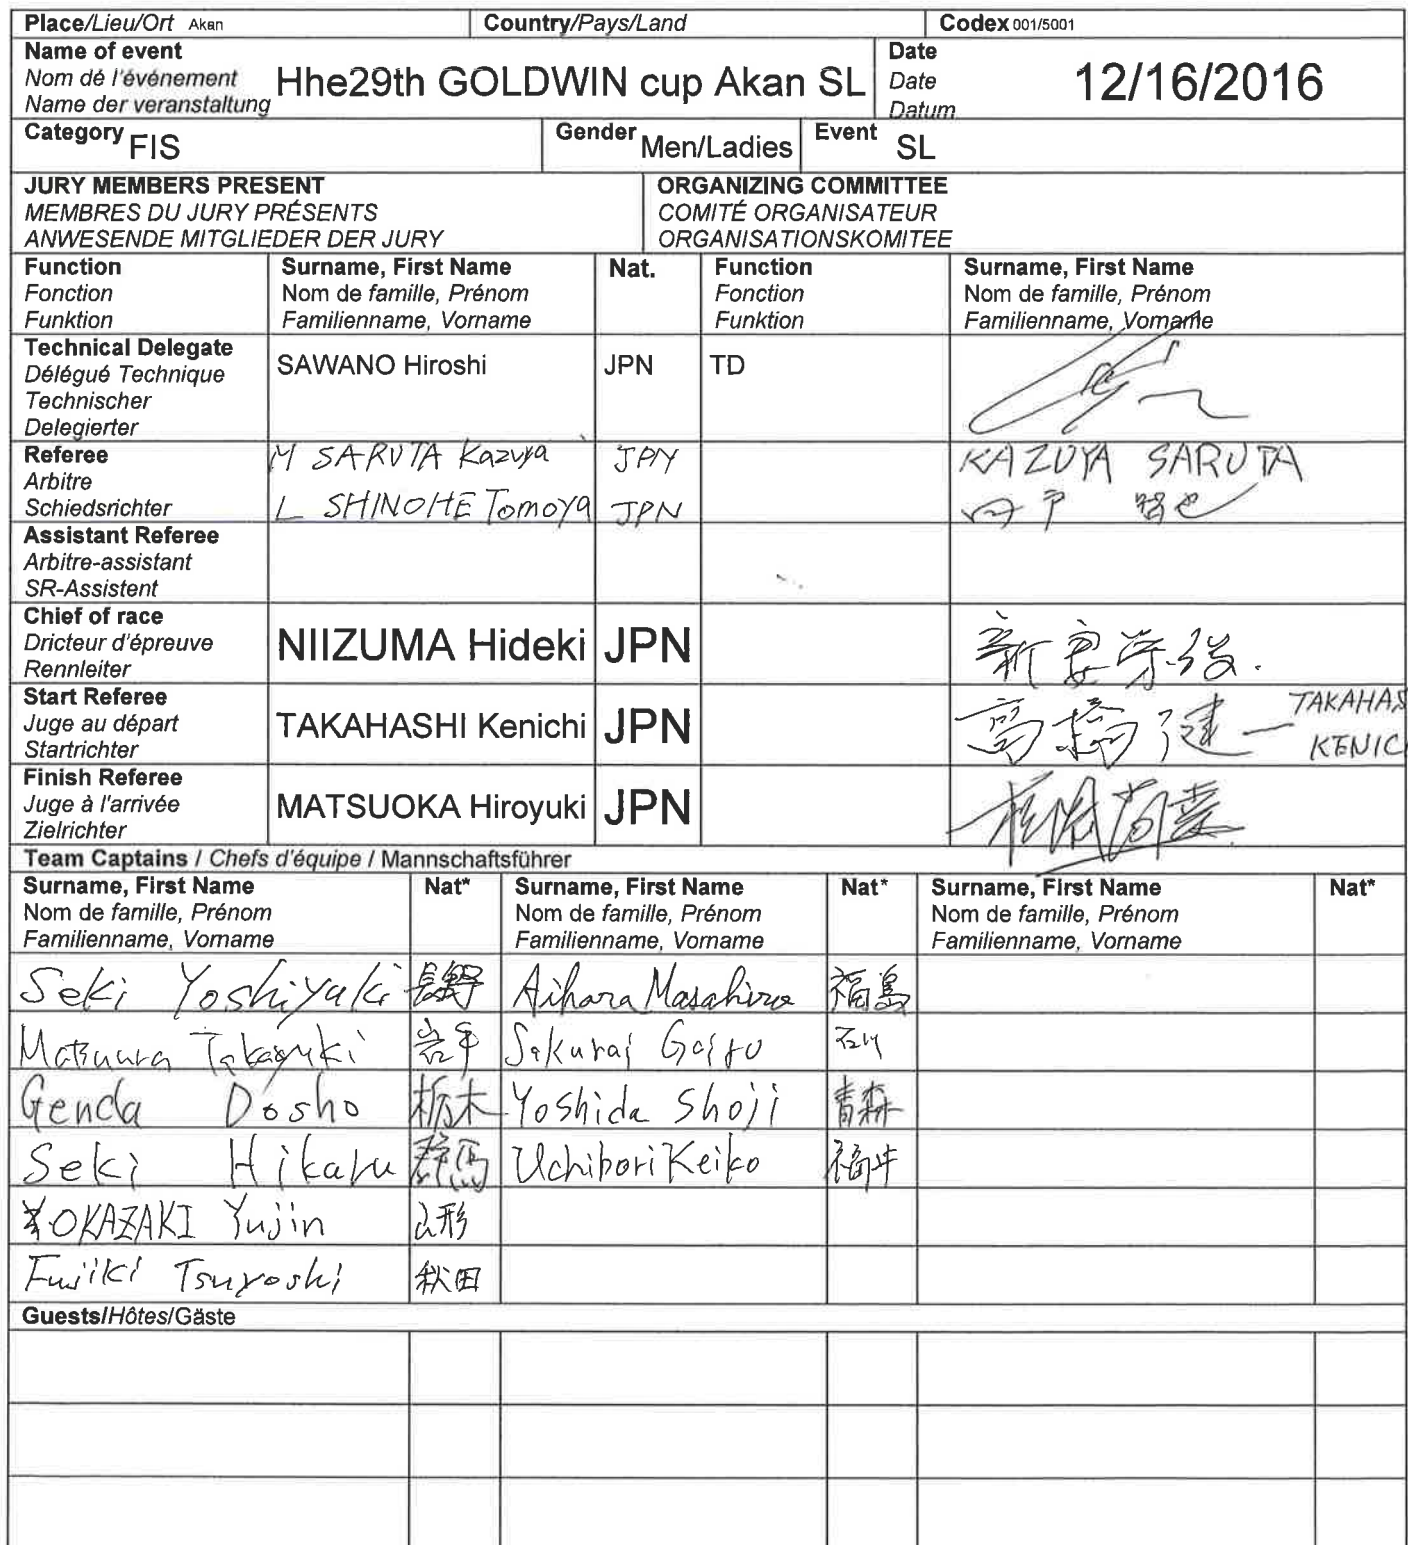 Place/Lieu/Ort Akan Country/Pays/Land Codex 001/5001
Name of event
Nom dé l'événement
Name der veranstaltung
Hhe29th GOLDWIN cup Akan SL
Date
Date
Datum
12/16/2016
Category FIS Gender Men/Ladies Event SL
JURY MEMBERS PRESENT
MEMBRES DU JURY PRÉSENTS
ANWESENDE MITGLIEDER DER JURY
ORGANIZING COMMITTEE
COMITÉ ORGANISATEUR
ORGANISATIONSKOMITEE
Function Surname, First Name Nat. Function Surname, First Name
Fonction Nom de famille, Prénom Fonction Nom de famille, Prénom
Funktion Familienname, Vorname Funktion Familienname, Vorname
Technical Delegate
Délégué Technique
Technischer
Delegierter
SAWANO Hiroshi JPN TD
Referee
Arbitre
Schiedsrichter
M SARUTA Kazuya JPN KAZUYA SARUTA
L SHINOHE Tomoya JPN 四戸 智也
Assistant Referee
Arbitre-assistant
SR-Assistent
Chief of race
Dricteur d'épreuve
Rennleiter
NIIZUMA Hideki JPN 新妻栄俊.
Start Referee
Juge au départ
Startrichter
TAKAHASHI Kenichi JPN 高橋健一 TAKAHAS
KENIC
Finish Referee
Juge à l'arrivée
Zielrichter
MATSUOKA Hiroyuki JPN
Team Captains / Chefs d'équipe / Mannschaftsführer
Surname, First Name Nat* Surname, First Name Nat* Surname, First Name Nat*
Nom de famille, Prénom Nom de famille, Prénom Nom de famille, Prénom
Familienname, Vorname Familienname, Vorname Familienname, Vorname
Seki Yoshiyuki 長野 Aihara Masahiro 福島
Matsuura Takayuki 岩手 Sakurai Goito 石川
Genda Dosho 栃木 Yoshida Shoji 青森
Seki Hikaru 群馬 Uchibori Keiko 福井
OKAZAKI Yujin 山形
Fujiki Tsuyoshi 秋田
Guests/Hôtes/Gäste